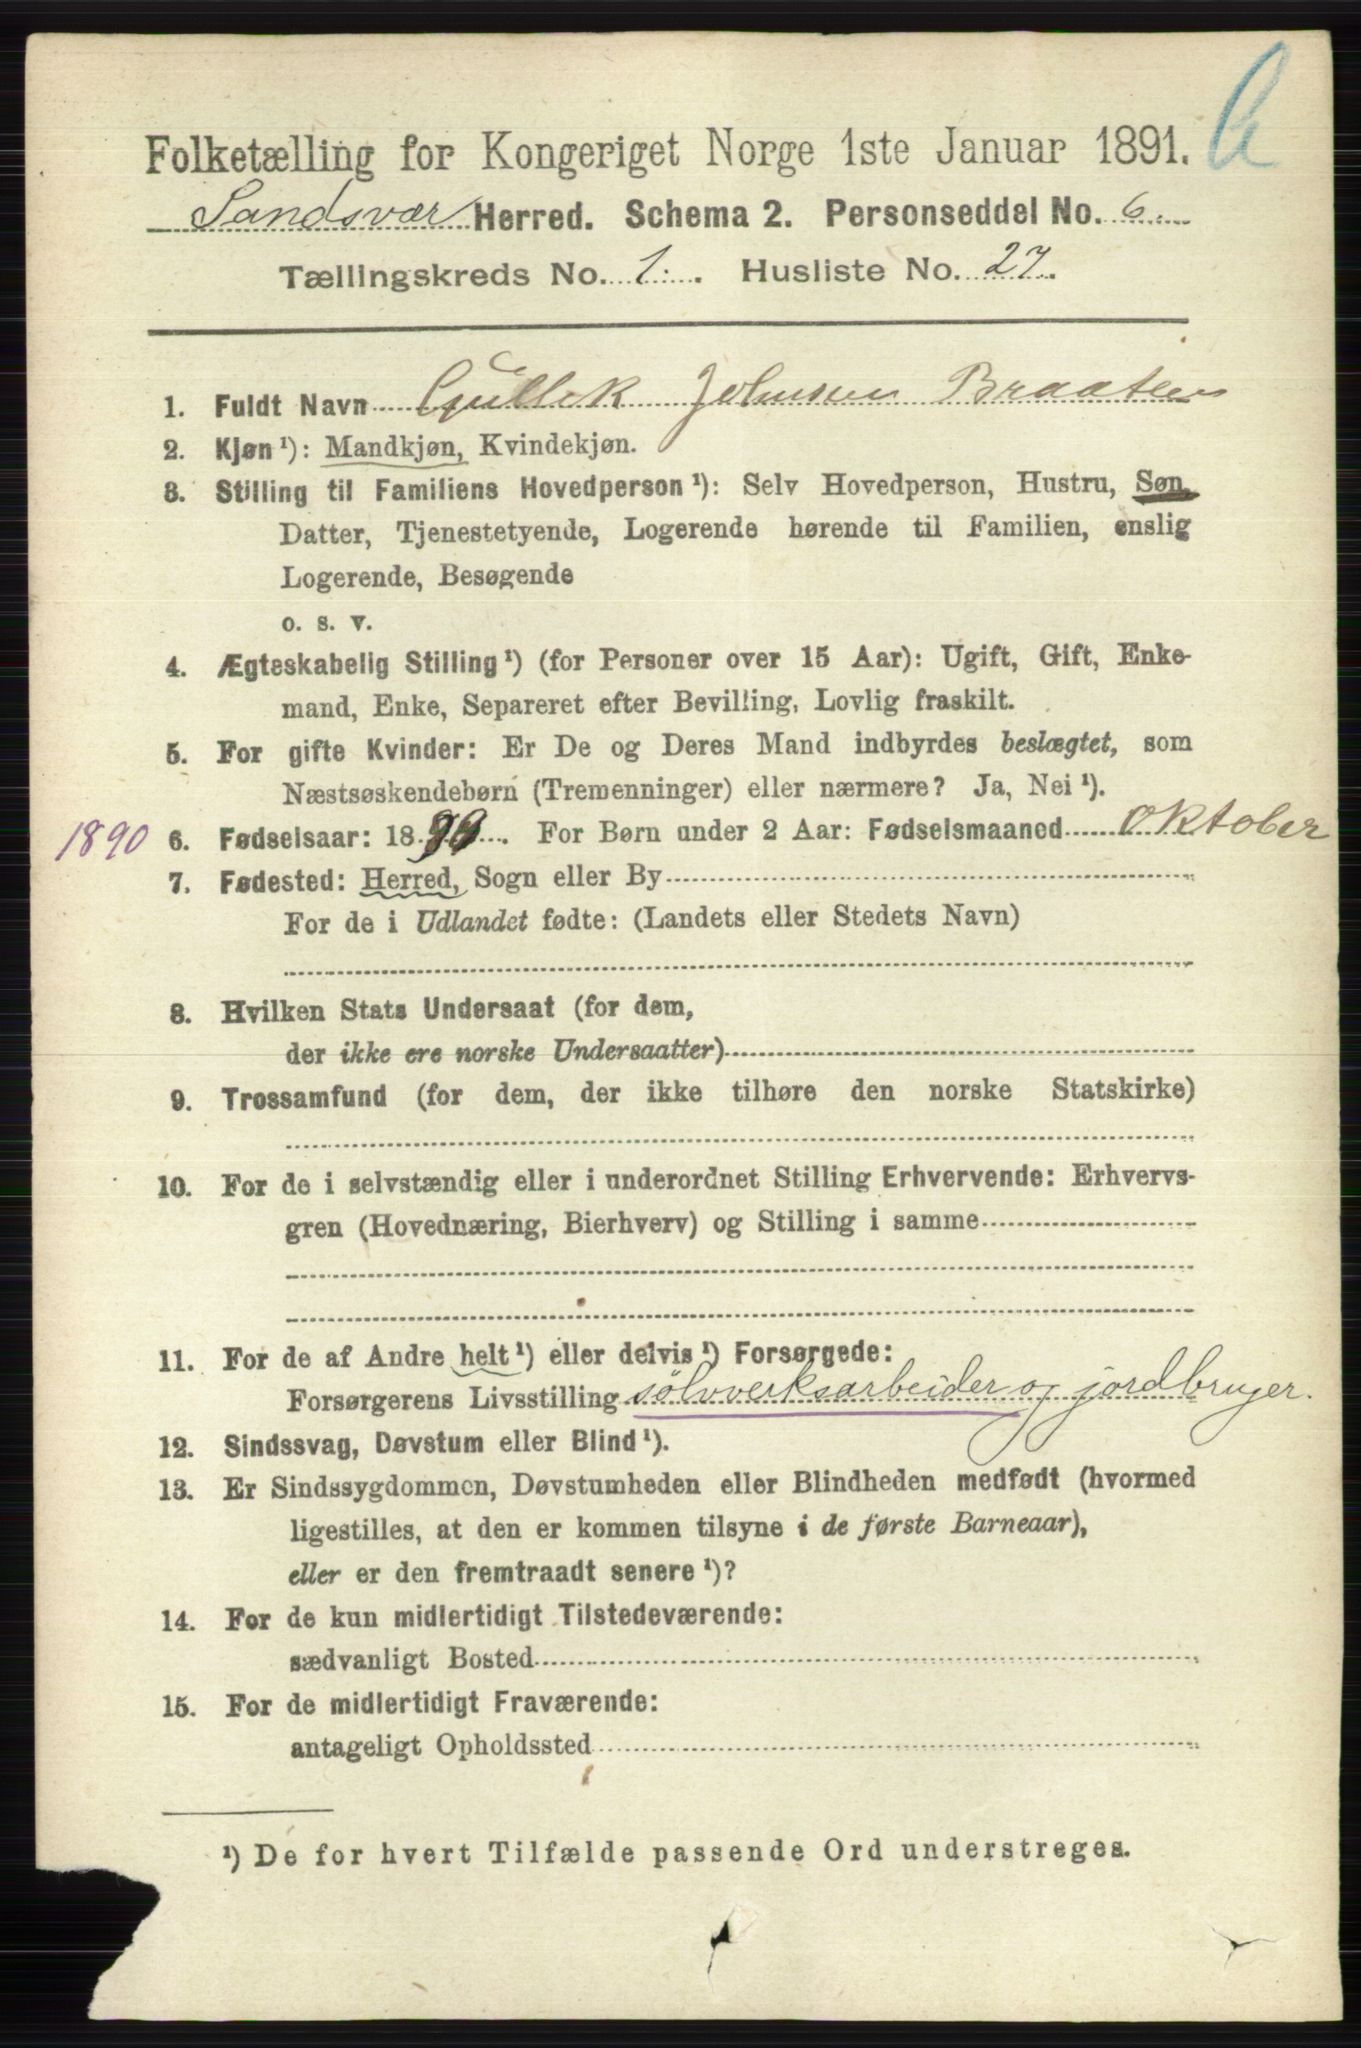 Folketælling for Kongeriget Norge 1ste Januar 1891.
Sandsvær Herred. Schema 2. Personseddel No. 6.
Tællingskreds No. 1. Husliste No. 27.
1. Fuldt Navn Gullek Johnsen Braaten
2. Kjøn ¹): Mandkjøn, Kvindekjøn.
3. Stilling til Familiens Hovedperson ¹): Selv Hovedperson, Hustru, Søn,
Datter, Tjenestetyende, Logerende hørende til Familien, enslig
Logerende, Besøgende
o. s. v.
4. Ægteskabelig Stilling ¹) (for Personer over 15 Aar): Ugift, Gift, Enke-
mand, Enke, Separeret efter Bevilling, Lovlig fraskilt.
5. For gifte Kvinder: Er De og Deres Mand indbyrdes beslægtet, som
Næstsøskendebørn (Tremenninger) eller nærmere? Ja, Nei ¹).
1890 6. Fødselsaar: 18 . For Børn under 2 Aar: Fødselsmaaned oktober
7. Fødested: Herred, Sogn eller By
For de i Udlandet fødte: (Landets eller Stedets Navn)
8. Hvilken Stats Undersaat (for dem,
der ikke ere norske Undersaatter)
9. Trossamfund (for dem, der ikke tilhøre den norske Statskirke)
10. For de i selvstændig eller i underordnet Stilling Erhvervende: Erhvervs-
gren (Hovednæring, Bierhverv) og Stilling i samme
11. For de af Andre helt ¹) eller delvis ¹) Forsørgede:
Forsørgerens Livsstilling sølvverksarbeider og jordbruger.
12. Sindssvag, Døvstum eller Blind ¹).
13. Er Sindssygdommen, Døvstumheden eller Blindheden medfødt (hvormed
ligestilles, at den er kommen tilsyne i de første Barneaar),
eller er den fremtraadt senere ¹)?
14. For de kun midlertidigt Tilstedeværende:
sædvanligt Bosted
15. For de midlertidigt Fraværende:
antageligt Opholdssted
¹) De for hvert Tilfælde passende Ord understreges.